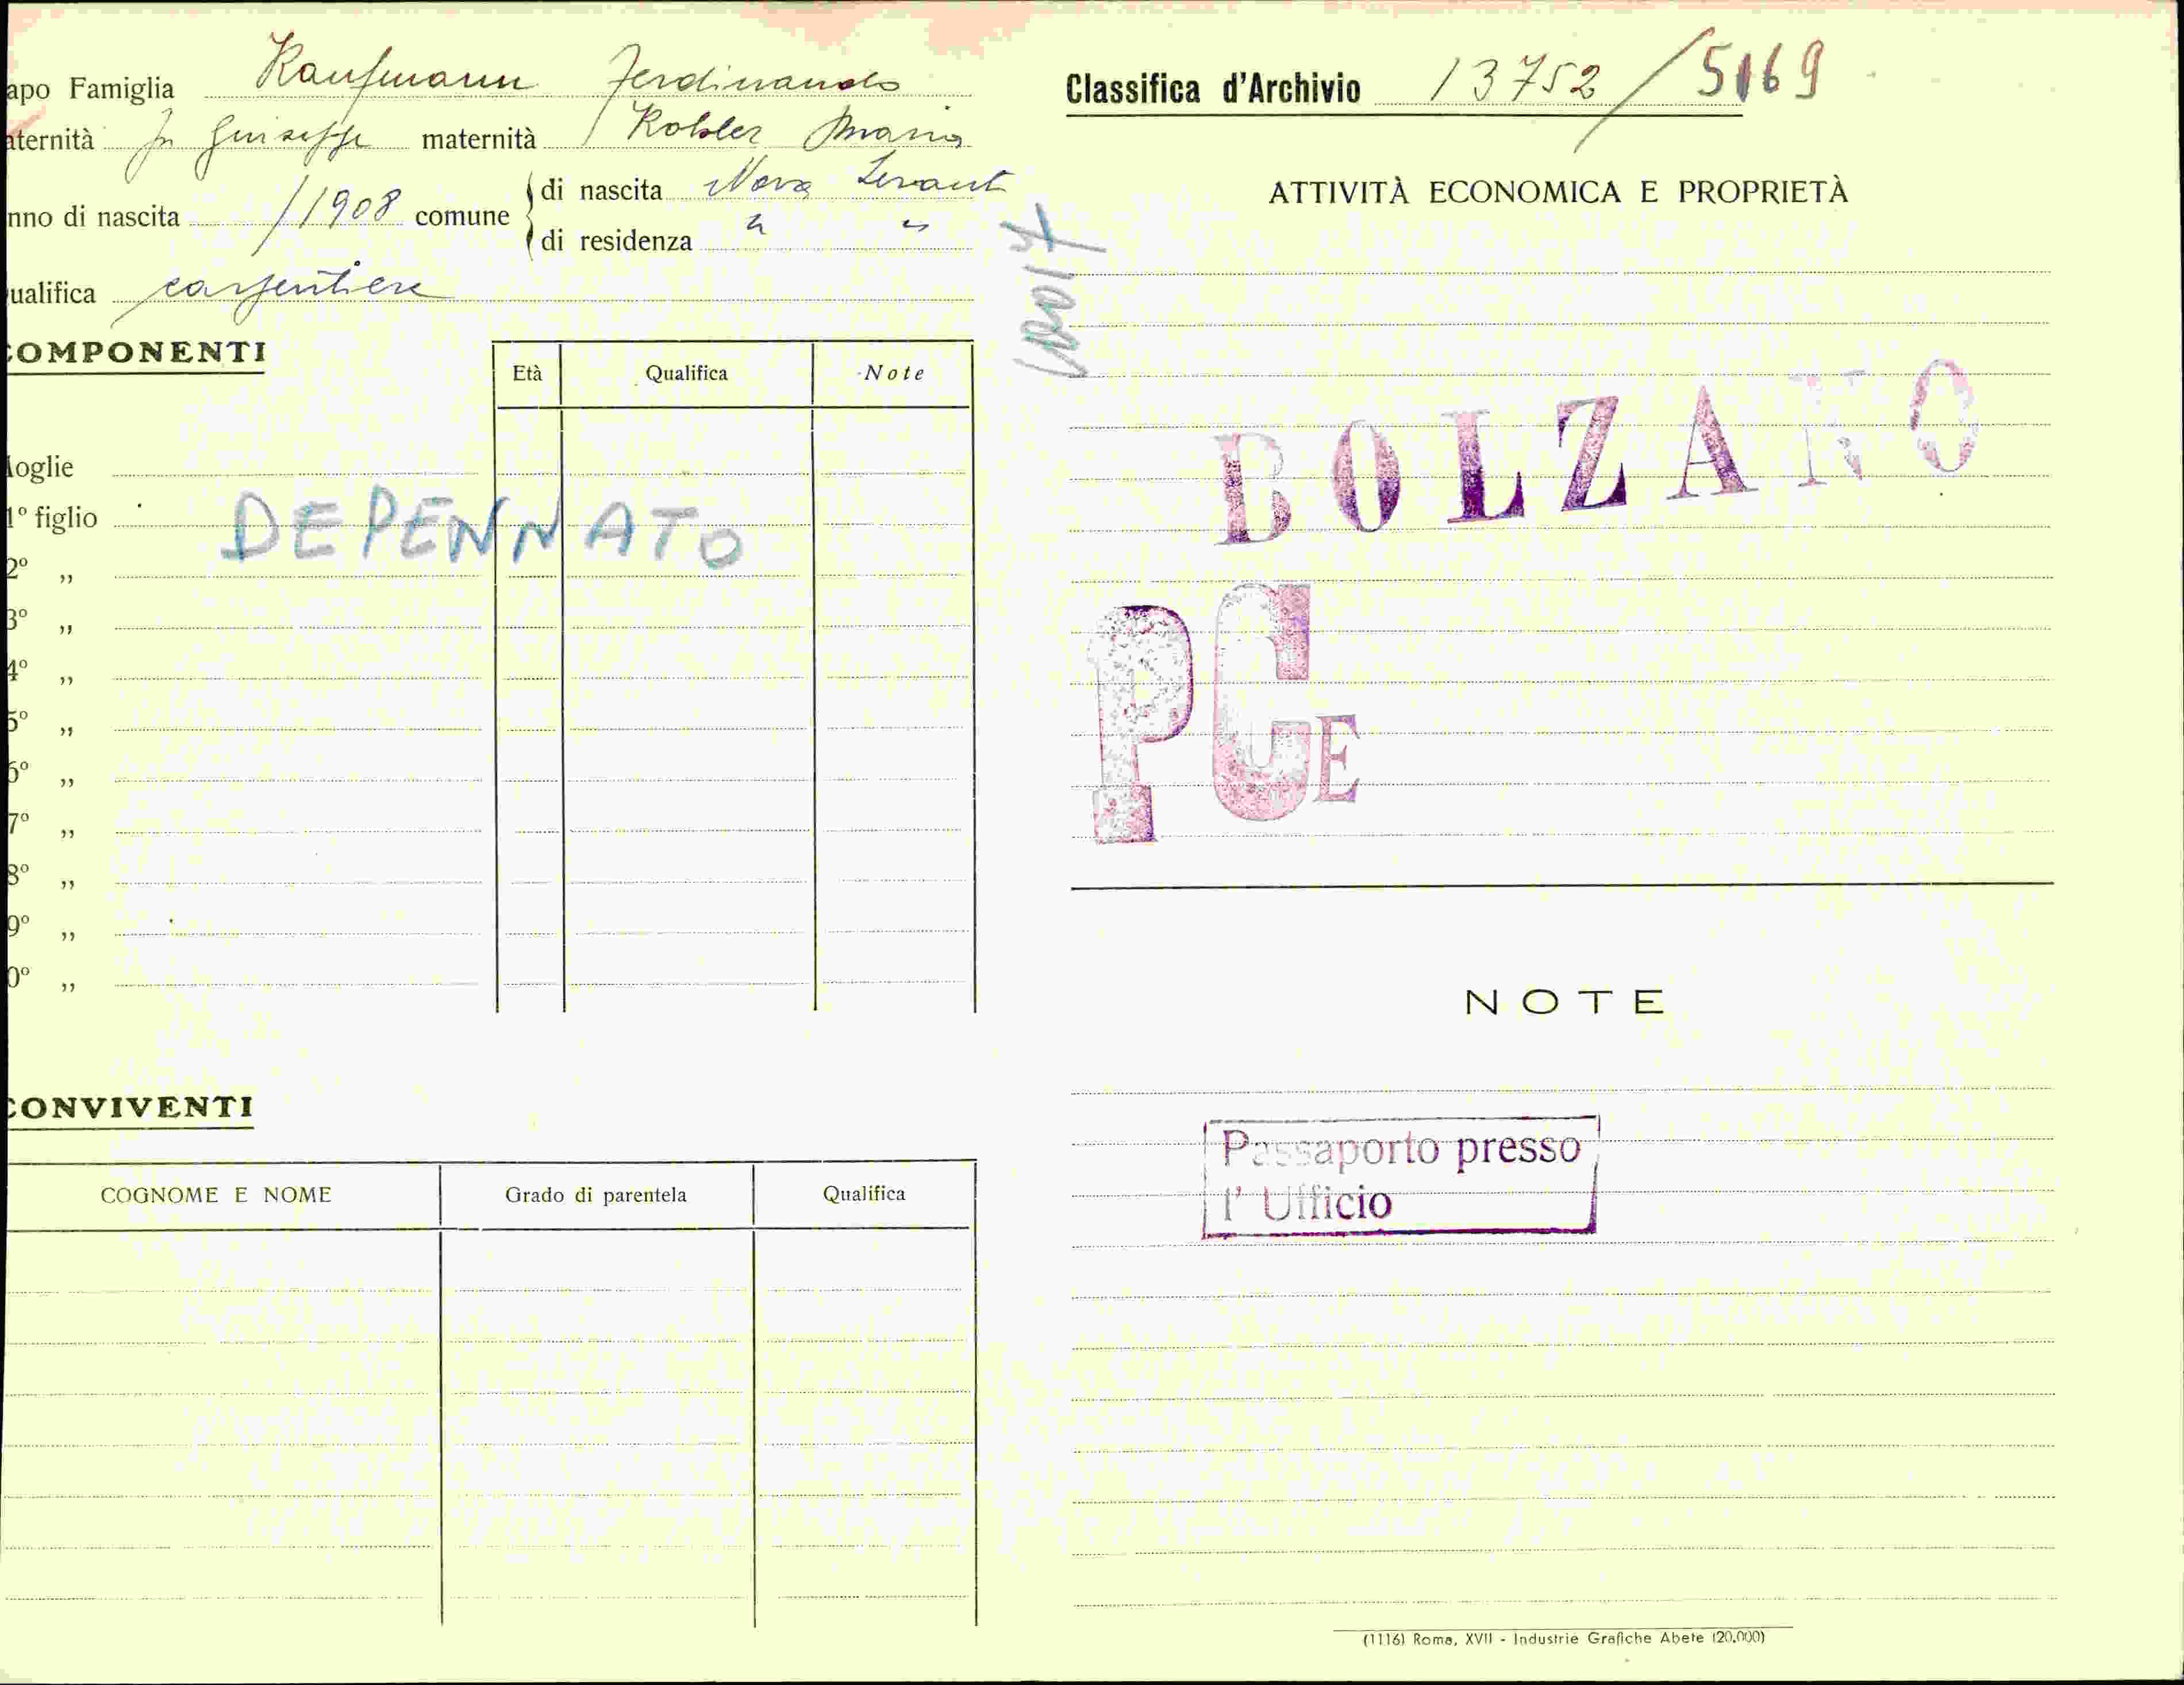 apo Famiglia Kaufmann Ferdinando
aternità fu Giuseppe maternità Kobler Maria
nno di nascita 1908 comune
di nascita Nova Levant
di residenza " "
ualifica carpentiere
COMPONENTI
Età Qualifica Note
Moglie
1º figlio
DEPENNATO
2º ,,
3º ,,
4º ,,
5º ,,
6º ,,
7º ,,
8º ,,
9º ,,
0º ,,
CONVIVENTI
COGNOME E NOME Grado di parentela Qualifica
Classifica d'Archivio 13752/5169
ATTIVITÀ ECONOMICA E PROPRIETÀ
BOLZANO
PGE
NOTE
Passaporto presso
l' Ufficio
(1116) Roma, XVII - Industrie Grafiche Abete (20.000)